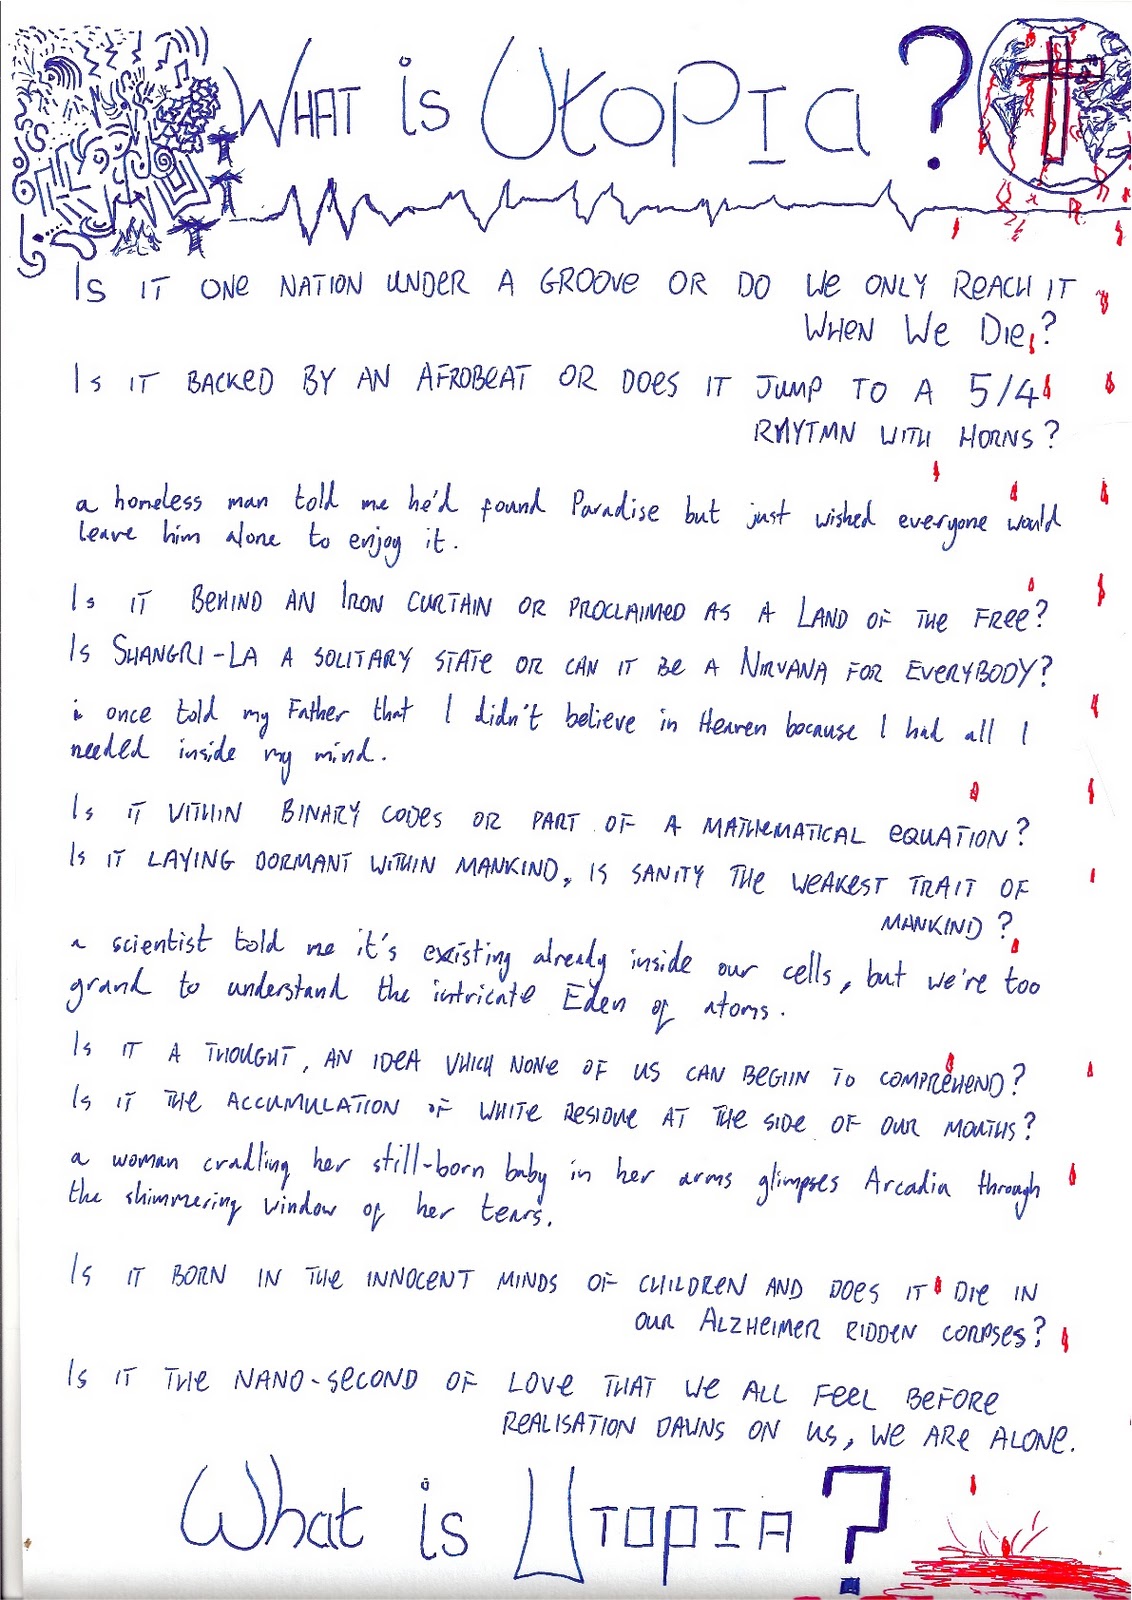 What is Utopia?
Is it one nation under a groove or do we only reach it
when we die?
Is it backed by an afrobeat or does it jump to a 5/4
rhytmn with horns?
a homeless man told me he'd found Paradise but just wished everyone would
leave him alone to enjoy it.
Is it behind an Iron curtain or proclaimed as a Land of the Free?
Is Shangri-La a solitary state or can it be a Nirvana for everybody?
i once told my Father that I didn't believe in Heaven because I had all I
needed inside my mind.
Is it within binary codes or part of a mathematical equation?
Is it laying dormant within mankind, is sanity the weakest trait of
mankind?
a scientist told me it's existing already inside our cells, but we're too
grand to understand the intricate Eden of atoms.
Is it a thought, an idea which none of us can begiin to comprehend?
Is it the accumulation of white residue at the side of our mouths?
a woman cradling her still-born baby in her arms glimpses Arcadia through
the shimmering window of her tears.
Is it born in the innocent minds of children and does it die in
our Alzheimer ridden corpses?
Is it the nano-second of love that we all feel before
realisation dawns on us, we are alone.
What is Utopia?